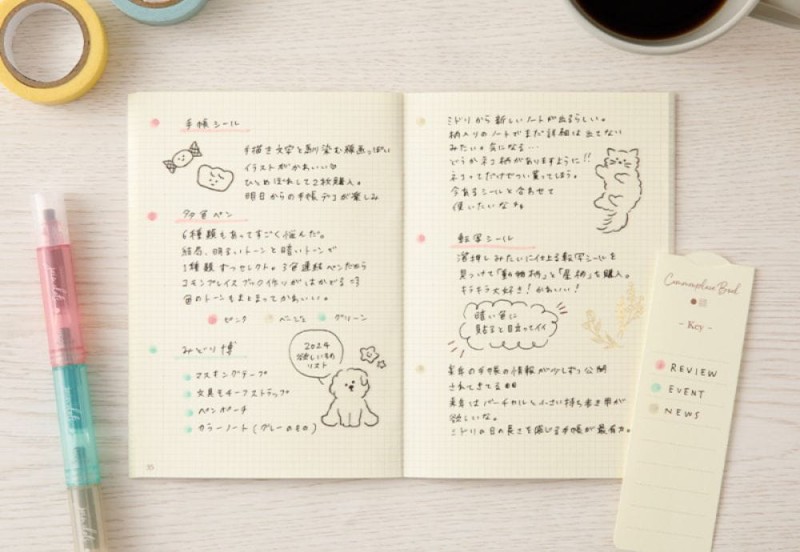 手帳シール
手描き文字と馴染む線画っぽい
イラストがかわいい
ひとめぼれして2枚購入。
明日からの手帳デコが楽しみ
多色ペン
6種類もあってすごく悩んだ。
結局、明るいトーンと暗いトーンで
1種類ずつセレクト。3色連結ペンだから
コモンプレイスブック作りがはかどる
色のトーンもまとまってかわいい。
ピンク ベージュ グリーン
みどり博
2024
欲しいもの
リスト
マスキングテープ
文具モチーフストラップ
ペンポーチ
カラーノート(グレーのもの)
ミドリから新しいノートが出るらしい。
柄入りのノートでまだ詳細は出てない
みたい。気になる…
どうかネコ柄がありますように!!
ネコってだけでつい買ってしまう。
今あるシールと合わせて
使いたいな
転写シール
箔押しみたいに仕上る転写シールを
見つけて「動物柄」と「星柄」を購入。
キラキラ大好き!かわいい!
暗い色に
貼ると目立ってイイ
来年の手帳の情報が少しずつ公開
されてきてる
来年はバーチカルと小さい持ち歩き用が
欲しいな。
ミドリの日の長さを感じる手帳が最有力。
Commonplace Book
- Key -
REVIEW
EVENT
NEWS